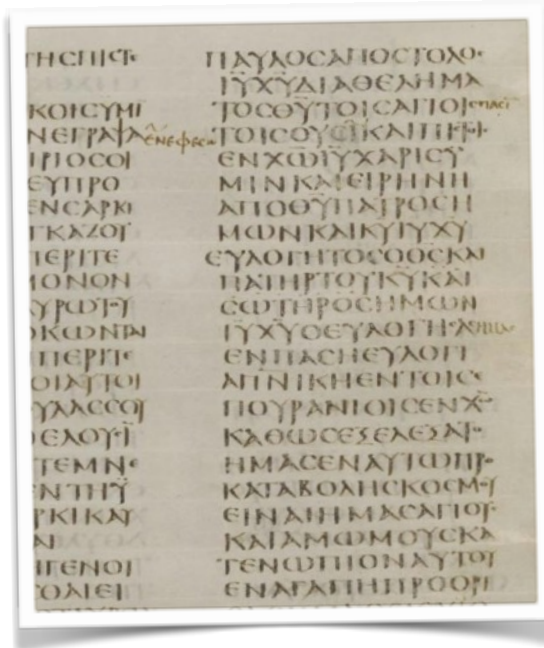 ΤΗϹΠΙϹΤΕ
ΚΟΙϹΥΜΙ
ΝΕΓΡΑΨΑ
ΕΥΠΡΟ
ΕΝϹΑΡΚΙ
ΓΚΑΖΟΥ
ΠΕΡΙΤΕ
ΜΟΝΟΝ
ΑΥΡΩΤΟΥ
ΟΚΩΝΤΑΙ
ΠΕΡΙΤΕ
ΟΙΑΥΤΟΙ
ΥΛΑϹϹΟΥ
ΘΕΛΟΥϹΙ
ΤΕΜΝΕ
ΕΝΤΗΫ
ΡΚΙΚΑΥ
ΑΙ
ΗΓΕΝΟΙ
ΠΑΥΛΟϹΑΠΟϹΤΟΛΟϹ
ΙΥΧΥΔΙΑΘΕΛΗΜΑ
ΤΟϹΘΥΤΟΙϹΑΓΙΟΙϹ πασι
εν εφεσω ΤΟΙϹΟΥϹΙΝΚΑΙΠΙϹΤΟΙϹ
ΕΝΧΩΙΥΧΑΡΙϹΥ
ΜΙΝΚΑΙΕΙΡΗΝΗ
ΑΠΟΘΥΠΑΤΡΟϹΗ
ΜΩΝΚΑΙΚΥΙΥΧΥ
ΕΥΛΟΓΗΤΟϹΟΘϹΚΑΙ
ΠΑΤΗΡΤΟΥΚΥΚΑΙ
ϹΩΤΗΡΟϹΗΜΩΝ
ΙΥΧΥΟΕΥΛΟΓΗϹΑϹ ημας
ΕΝΠΑϹΗΕΥΛΟΓΙ
ΑΠΝΙΚΗΕΝΤΟΙϹΕ
ΠΟΥΡΑΝΙΟΙϹΕΝΧΩ
ΚΑΘΩϹΕΞΕΛΕΞΑΤΟ
ΗΜΑϹΕΝΑΥΤΩΠΡΟ
ΚΑΤΑΒΟΛΗϹΚΟϹΜΟΥ
ΕΙΝΑΙΗΜΑϹΑΓΙΟΥϹ
ΚΑΙΑΜΩΜΟΥϹΚΑ
ΤΕΝΩΠΙΟΝΑΥΤΟΥ
ΕΝΑΓΑΠΗΠΡΟΟΡΙ